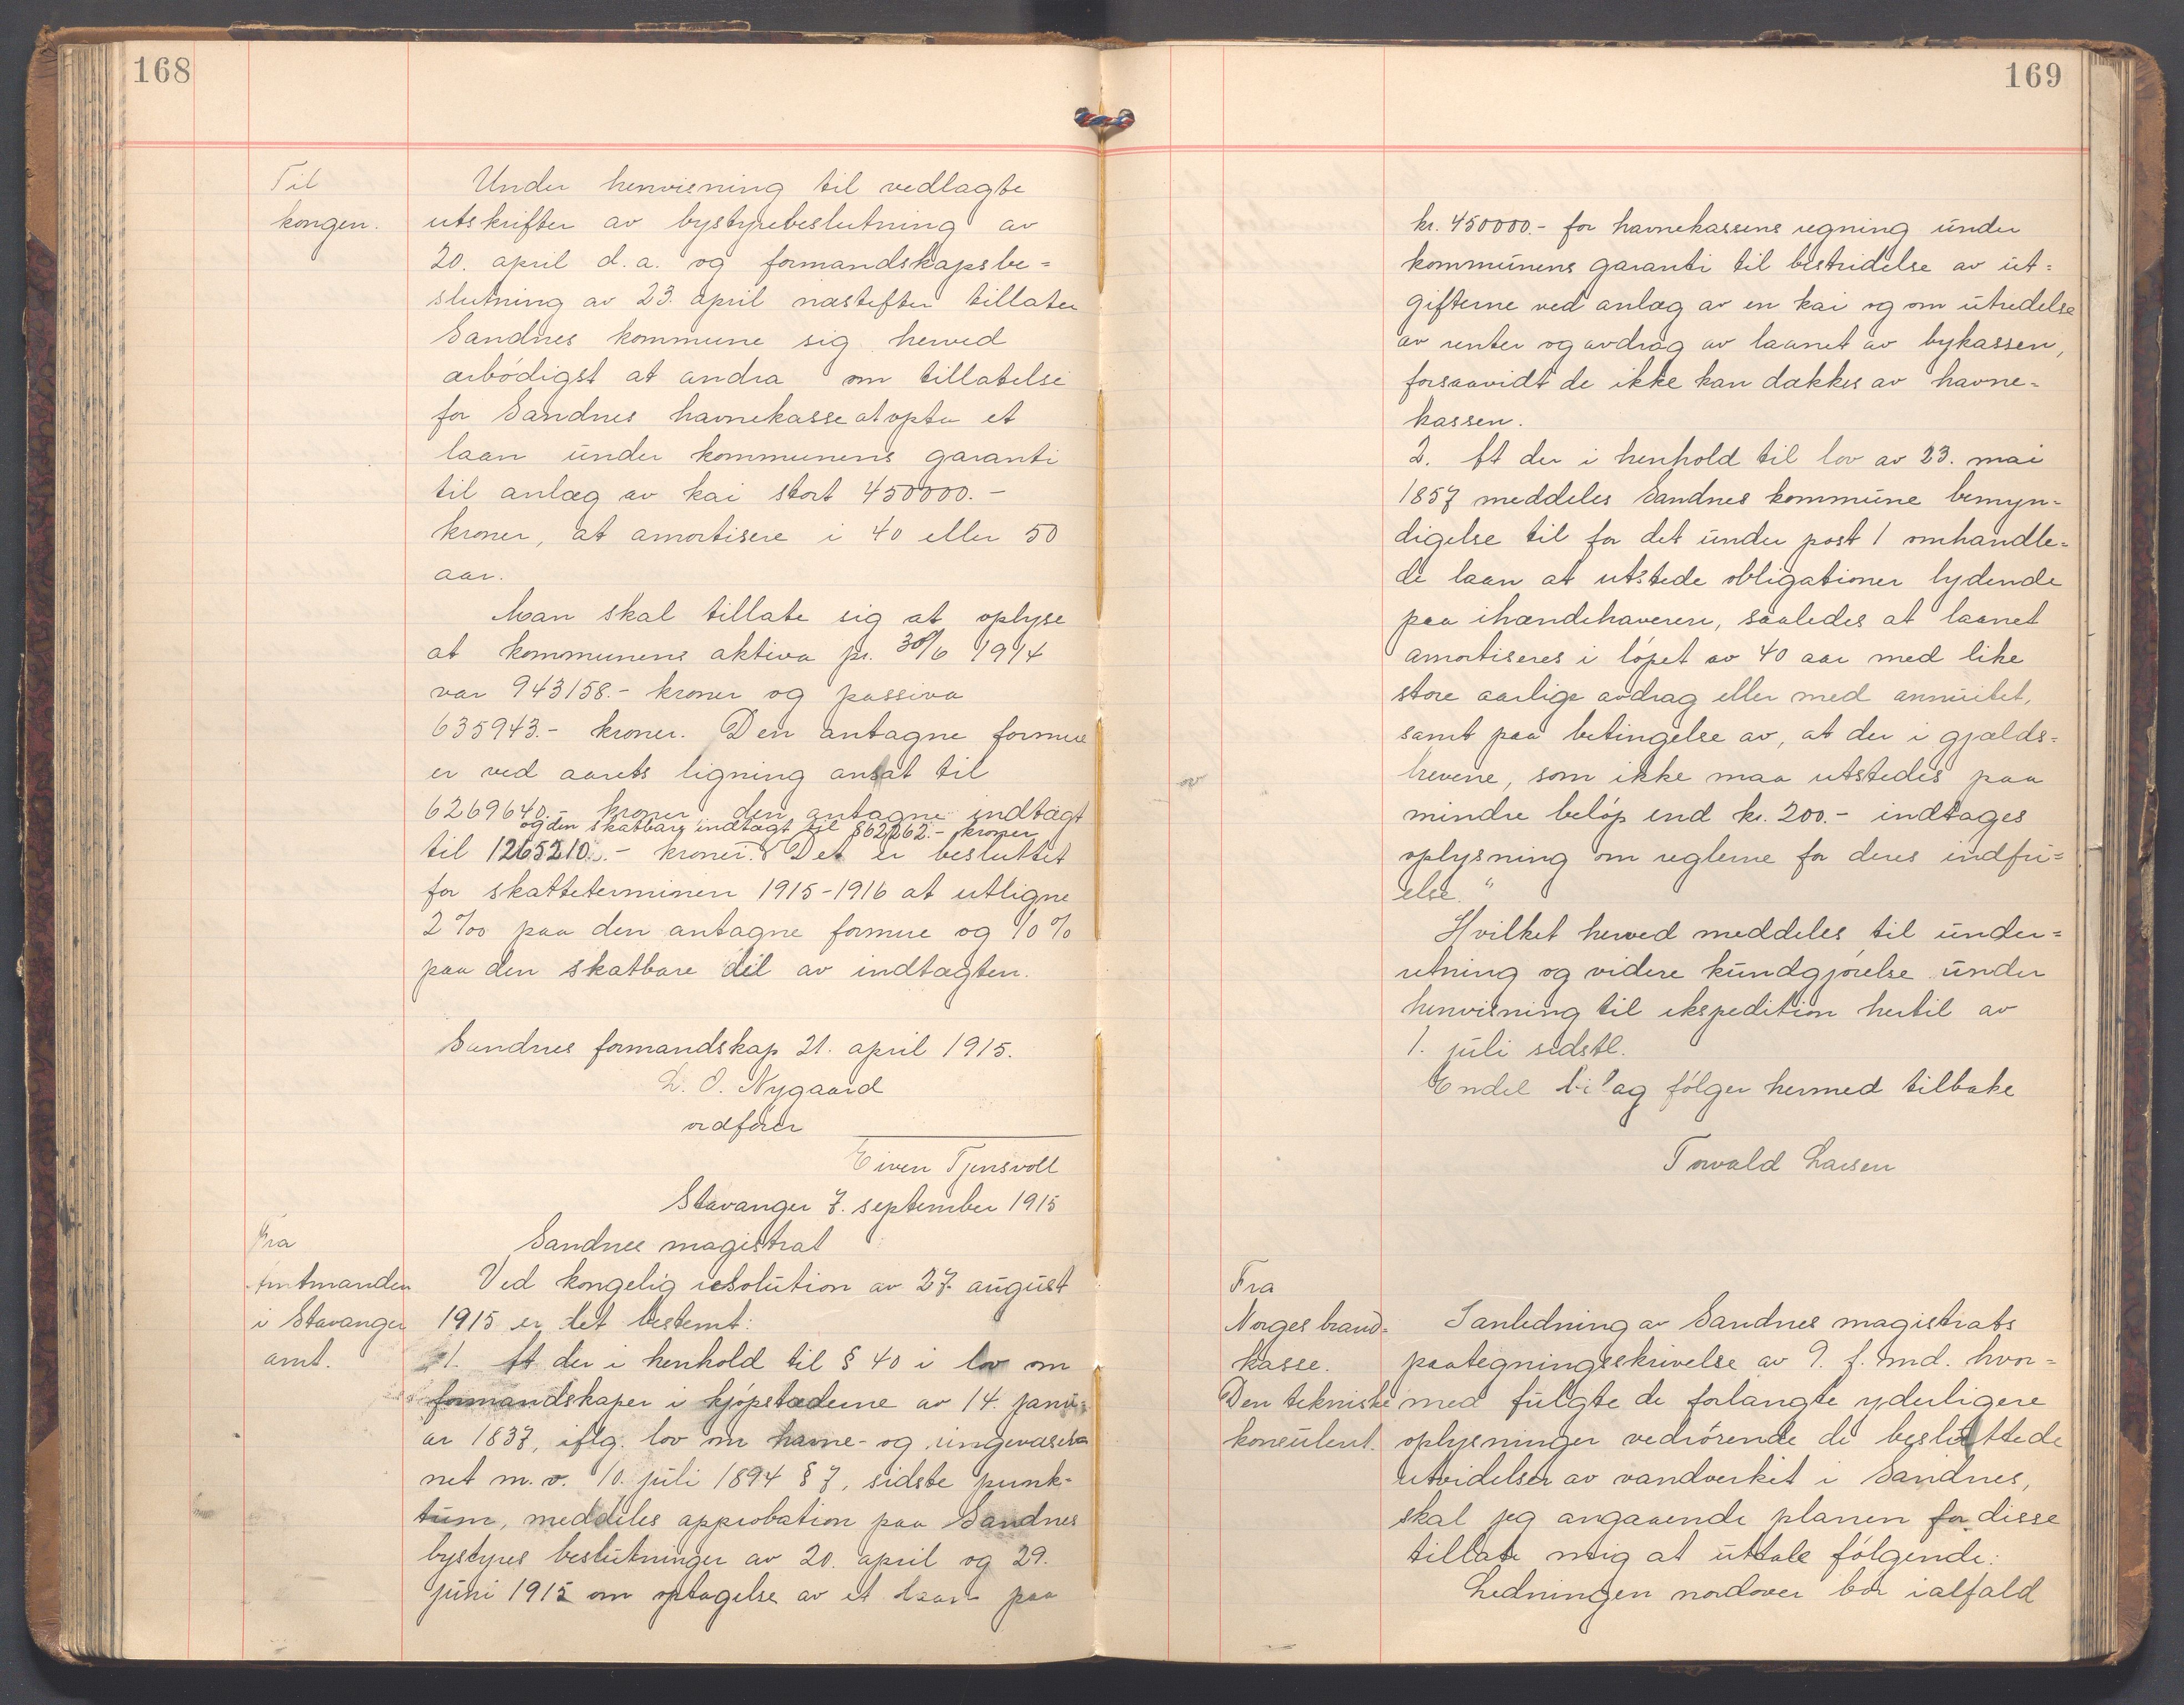 168
Til
kongen.
Under henvisning til vedlagte
utskrifter av bystyrebeslutning av
20. april d.a. og formandskapsbe=
slutning av 23. april næstefter tillater
Sandnes kommune sig herved
ærbødigst at andra om tillatelse
for Sandnes havnekasse at opta et
laan under kommunens garanti
til anlæg av kai stort 450000.-
kroner, at amortisere i 40 eller 50
aar.
Man skal tillate sig at oplyse
at kommunens aktiva pr. 30/6 1914
var 943158.- kroner og passiva
635943.- kroner. Den antagne formue
er ved aarets ligning ansat til
6269640.- kroner den antagne indtægt
og den skatbare indtægt til 862262.- kroner
til 1265210.- kroner. Det er besluttet
for skatteterminen 1915-1916 at utligne
2 ‰ paa den antagne formue og 10 %
paa den skatbare del av indtægten.
Sandnes formandskap 21. april 1915.
L. O. Nygaard
ordfører
Eiven Tjensvoll
Stavanger 7. september 1915
Sandnes magistrat
Fra
Amtmanden
i Stavanger
amt.
Ved kongelig resolution av 27. august
1915 er det bestemt:
1. At der i henhold til § 40 i lov om
formandskaper i kjøpstæderne av 14. janu=
ar 1837, iflg. lov om havne- og
net m.v. 10. juli 1894 § 7, sidste punk=
tum, meddeles approbation paa Sandnes
bystyres beslutninger av 20. april og 29.
juni 1915 om optagelse av et laan paa
169
kr. 450000.- for havnekassens regning under
kommunens garanti til bestridelse av ut=
gifterne ved anlæg av en kai og om utredelse
av renter og avdrag av laanet av bykassen,
forsaavidt de ikke kan dækkes av havne=
kassen.
2. At der i henhold til lov av 23. mai
1857 meddeles Sandnes kommune bemyn=
digelse til for det under post 1 omhandle=
de laan at utstede obligationer lydende
paa ihændehaveren, saaledes at laanet
amortiseres i løpet av 40 aar med like
store aarlige avdrag eller med annuitet,
samt paa betingelse av, at der i gjælds=
av
brevene, som ikke maa utstedes paa
mindre beløp end kr. 200.- indtages
oplysning om reglerne for deres indfri=
else."
Hvilket herved meddeles til under=
retning og videre kundgjørelse under
henvisning til ekspedition hertil av
1. juli sidstl.
Endel bilag følger hermed tilbake
Torvald Larsen
Fra
Norges brand=
kasse.
Den tekniske
konsulent.
I anledning av Sandnes magistrats
paategningsskrivelse av 9. f. md. hvor=
med fulgte de forlangte yderligere
oplysninger vedrørende de besluttede
utvidelser av vandverket i Sandnes,
skal jeg angaaende planen for disse
tillate mig at uttale følgende:
Ledningen nordover bør ialfald